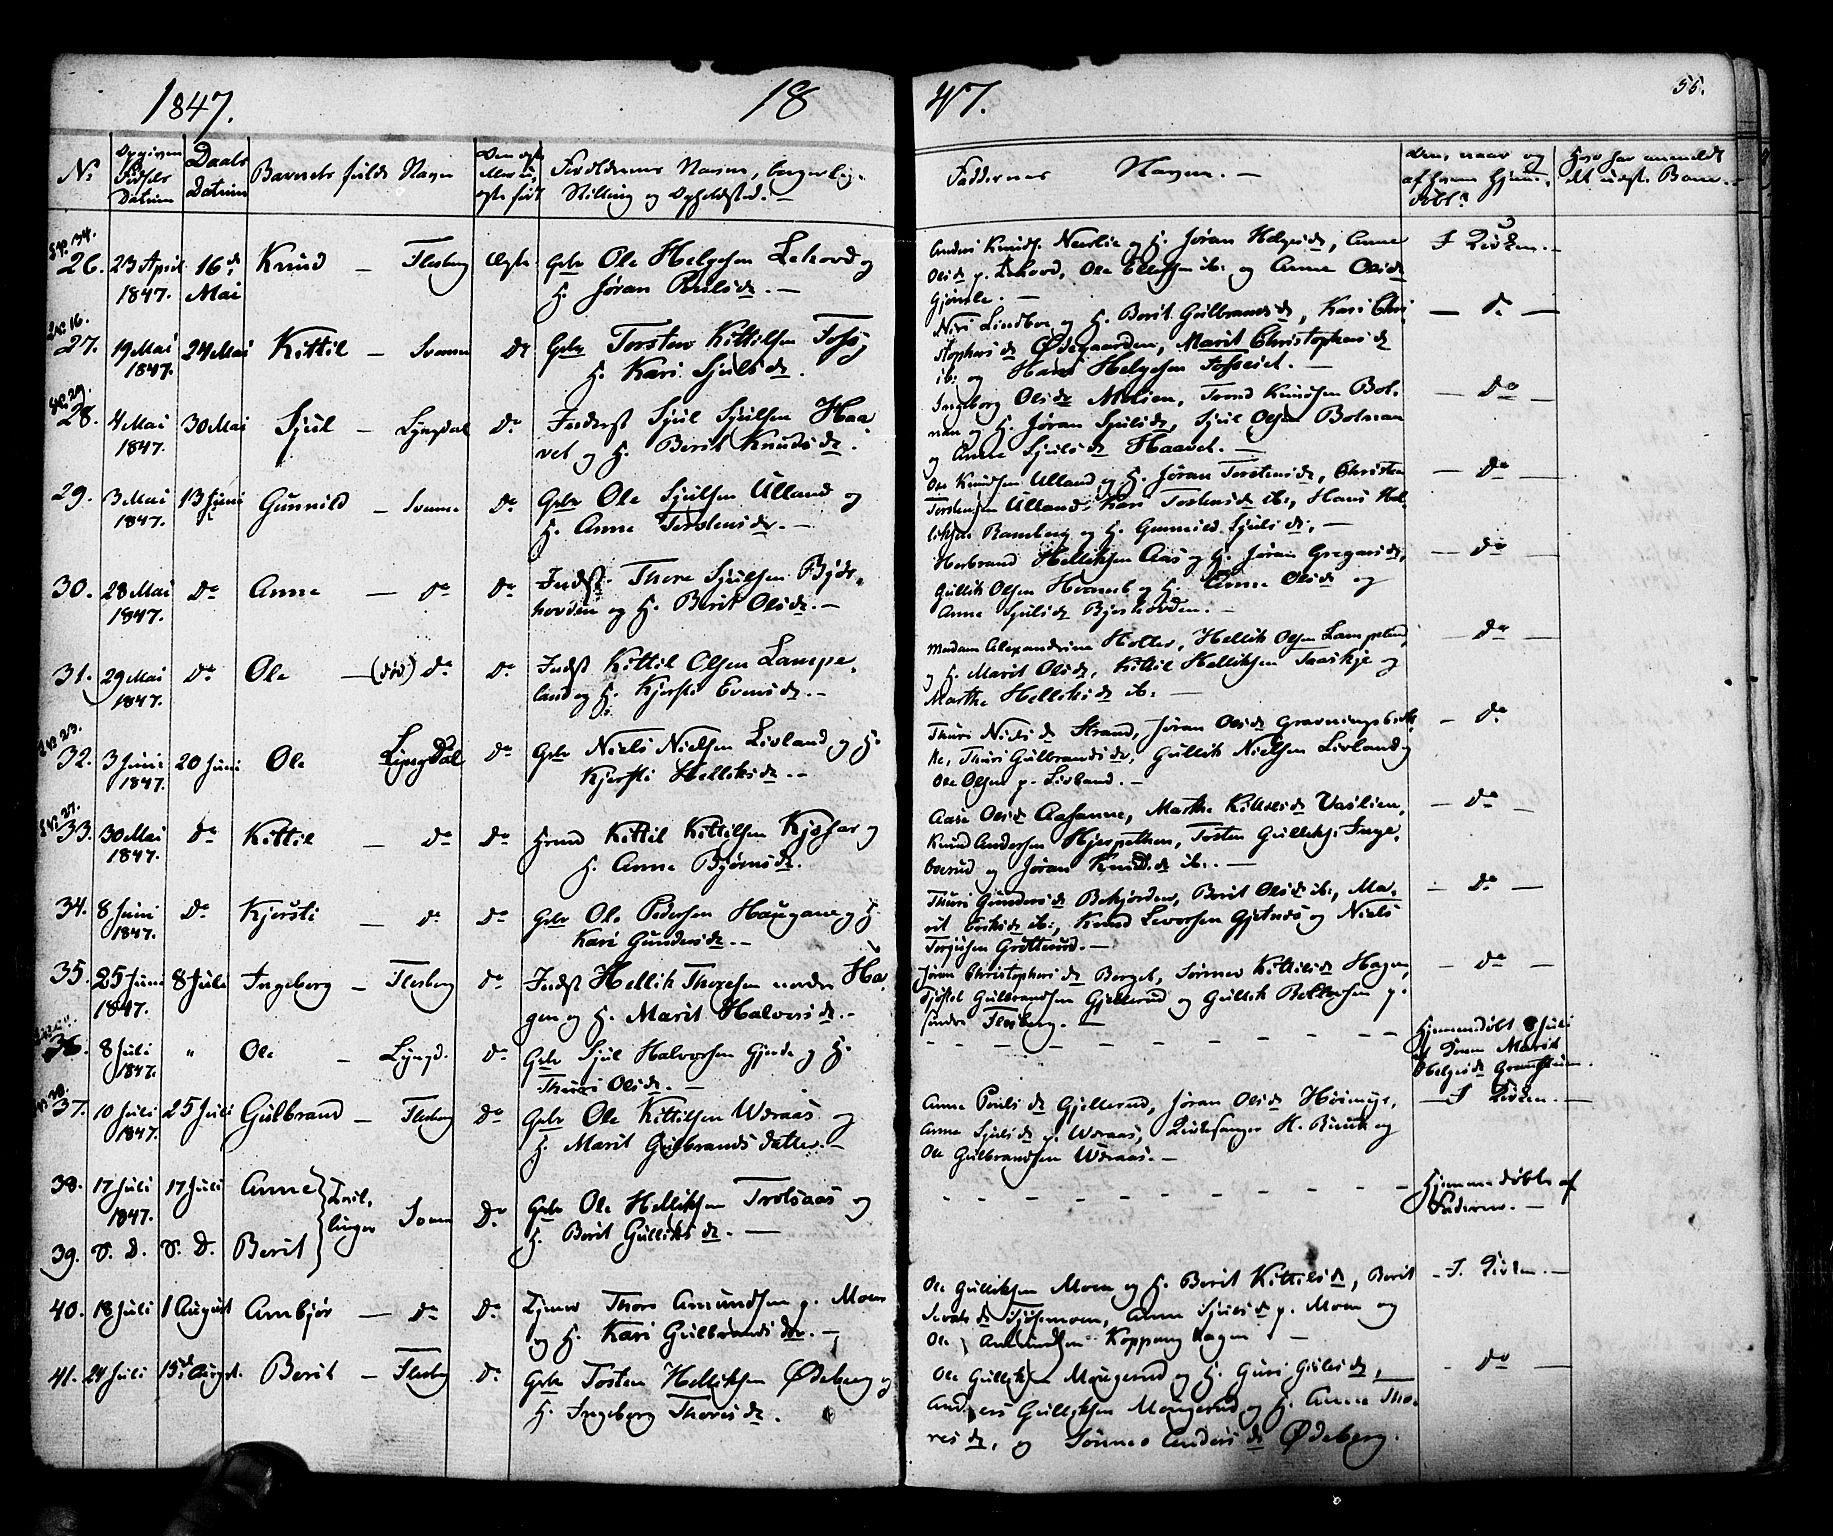 1847.
18
47.
55.
No
Opgiven Fødsels Datum
Daabs Datum
Barnets fulde Navn
Forældrenes Navn, borgerlige Stilling og Opholdsted. —
Faddernes Navne. —
26. 23 April 1847. 16de Mai Knud — Flesberg Ægte Gbr Ole Helgesen Lekovd og
H. Jøran Povlsdr. —
Anders Knuds. Nærlie og H. Jøran Helgesdr, Anne
Olsdr p. Lekovd, Ole Ellefsen ib. og Anne Olsdr
I Kirken. —
27. 19 Mai 1847. 24 Mai Kittil — Svenne Do Gbr Torsten Kittilsen Foss og
H. Kari Sjulsdr.
Niri Lindboe og H. Berit Gulbrandsdr, Kari Chri-
stophersdr Ødegaarden, Marit Christophersdr
ib. og Hans Helgesen Fosseiet. —
— Do —
28. 4 Mai 1847. 30 Mai Sjul — Lyngdal Do Inderst Sjul Sjulsen Haa-
vet og H. Berit Knudsdr.
Ingeborg Olsdr Moen, Tovd Knudsen Bol-
man og H. Jøran Sjulsdr, Sjul Olsen Bolman
og Anne Sjulsdr Haavet. —
— Do —
29. 3 Mai 1847. 13 Juni Gunnild — Svenne Do Gbr Ole Sjulsen Ulland og
H. Anne Torstensdr. —
Ole Knudsen Ulland og H. Jøran Torstensdr, Christen
Torstensen Ulland, Kari Torstensdr ib., Hans Hel-
liksen Ramberg og H. Gunnild Sjulsdr. —
— Do —
30. 28 Mai 1847. Do Anne — Do Do Indst. Thore Sjulsen Bjør-
hovden og H. Berit Olsdr. —
Herbrand Helliksen Aas og H. Jøran Gregarsdr,
Gullik Olsen og H. Anne Olsdr og
Anne Sjulsdr Bjørhovden. —
— Do —
31. 29 Mai 1847. Do Ole — (død) Do Do Indst Kittil Olsen Lampe-
land og H. Kjersti Evensdr. —
Madam Alexandrine Holter, Hellik Olsen Lampeland
og H. Marit Olsdr, Kittil Helliksen Taaskje og
Marthe Helliksdr ib. —
— Do —
32. 3 Juni 1847. 20 Juni Ole Lyngdal Do Gbr Niels Nielsen Livland og H.
Kjersti Helliksdr. —
Thuri Nielsdr Strand, Jøran Olsdr Gravningsbak-
ke, Thuri Gulbrandsdr, Gullik Nielsen Livland og
Ole Olsen p. Livland. —
— Do
33. 30 Mai 1847. Do Kittil — Do Do Hrmd Kittil Kittilsen og
H. Anne Bjørnsdr.
Aase Olsdr Aasanne, Marthe Kittilsdr Vaslien,
Knud Andersen Hjespetken, Torsten Gulliks. Inge-
borrud og Jøran Knudsdr ib. —
— Do —
34. 8 Juni 1847. Do Kjersti — Do Do Gbr Ole Pedersen Haugane og H.
Kari Gundersdr. —
Thuri Gundersdr Bekjorden, Berit Olsdr ib., Ma-
rit ib., Knud Levorsen Gjetnæs og Niels
Torgusen Grøtterud. —
— Do —
35. 25 Juni 1847. 8 Juli Ingeborg — Flesberg Do Indst Hellik Thoresen nordre Ha-
gen og H. Marit Halvorsdr. —
Jøran Christophersdr Berget, Sønnev Kittilsdr Hagen,
Tjøstel Gulbrandsen Gjellerud og Gullik p.
søndre Flesberg. —
— Do —
36. 8 Juli 1847. " Ole — Lyngd. Do Gbr Sjul Halvorsen Gjerde og H.
Thuri Olsdr. —
Hjemmedøbt 8 Juli
af Marit
Helgesdr
37. 10 Juli 1847. 25 Juli Gulbrand — Flesberg Do Gbr Ole Kittilsen Wæraas og
H. Marit Gulbrands datter. —
Anne Povlsdr Gjellerud, Jøran Olsdr Høimyr,
Anne Sjulsdr p. Wæraas, Kirkesanger H. Ruud og
Ole Gulbrandsen Wæraas. —
— I Kirken. —
38. 17 Juli 1847. 17 Juli Anne
Tvil-
linger
Svenn Do Gbr Ole Helliksen Trolsaas og
H. Berit Gulliksdr. —
Hjemmedøbte af
Faderen. —
39. S. D. S. D. Berit
40. 18 Juli 1 August Anbjør — Do Do Tjener Thore Amundsen p. Moen
og H. Kari Gulbrandsdtr. —
Ole Gulliksen Moen og H. Berit Kittilsdr, Berit
Tjøsemoen, Anne Sjulsdr p. Moen og
Ole Amundsen Koppang hagen —
— I Kirken. —
41. 24 Juli 15de August. Berit — Flesberg Do Gbr Tosten Helliksen Ødeberg og
H. Ingeborg Thoresdr.
Ole Gulliksen Mougerud og H. Guri Gulsdr,
Anders Gulliksen Mougerud og H. Anne Tho-
resdr, og Sønnev Andersdr Ødeberg.
— Do —